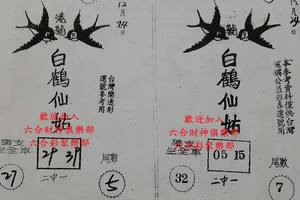 港號
12月24日
白鶴仙帖
台灣樂透彩
選號參考用
歡迎加入
六合財神俱樂部
六合彩聚樂部
獨支
坐全車
29 39
尾數
27
二中一
5
港號
12月24日
白鶴仙帖
本參考資料僅供台灣
選號用
歡迎加入
六合財神俱樂部
六合彩聚樂部
獨支
坐全車
05 15
尾數
32
二中一
7